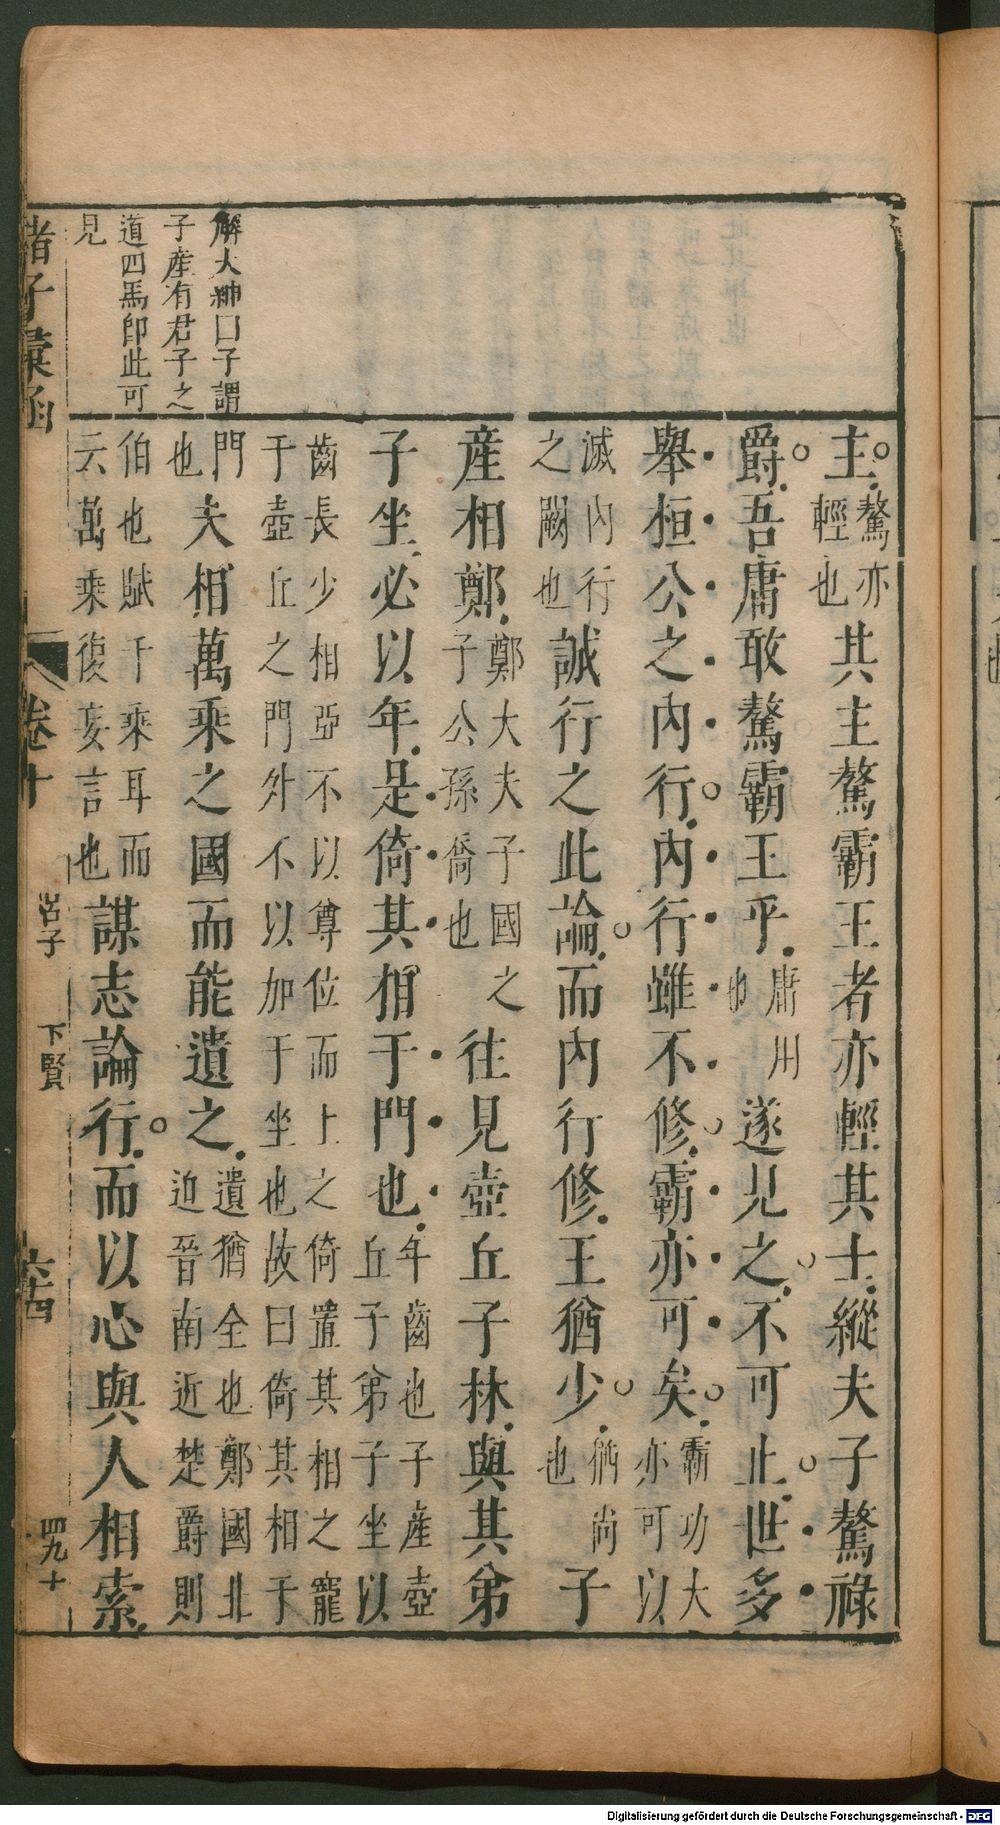 解大紳曰子謂
子產有君子之
道四焉即此可
見
主驁亦輕也其主驁霸王者亦輕其士縱夫子驁祿
爵吾庸敢驁霸王乎庸用也遂見之不可止世多
舉桓公之內行內行雖不修霸亦可矣霸功大亦可以
滅內行之闕也誠行之此論而內行修王猶少猶尚也子
產相鄭鄭大夫子國之子公孫僑也往見壺丘子林與其弟
子坐必以年是倚其相于門也年齒也子產壺丘子弟子坐以
齒長少相亞不以尊位而上之倚置其相之寵于壺丘之門外不以加于坐也故曰倚其相于
門也夫相萬乘之國而能遺之遺猶全也鄭國北迫晉南近楚爵則
伯也賦千乘耳而云萬乘復妄言也謀志論行而以心與人相索
諸子彙函 卷十 呂子 下賢 六十四 四九十
Digitalisierung gefördert durch die Deutsche Forschungsgemeinschaft - DFG